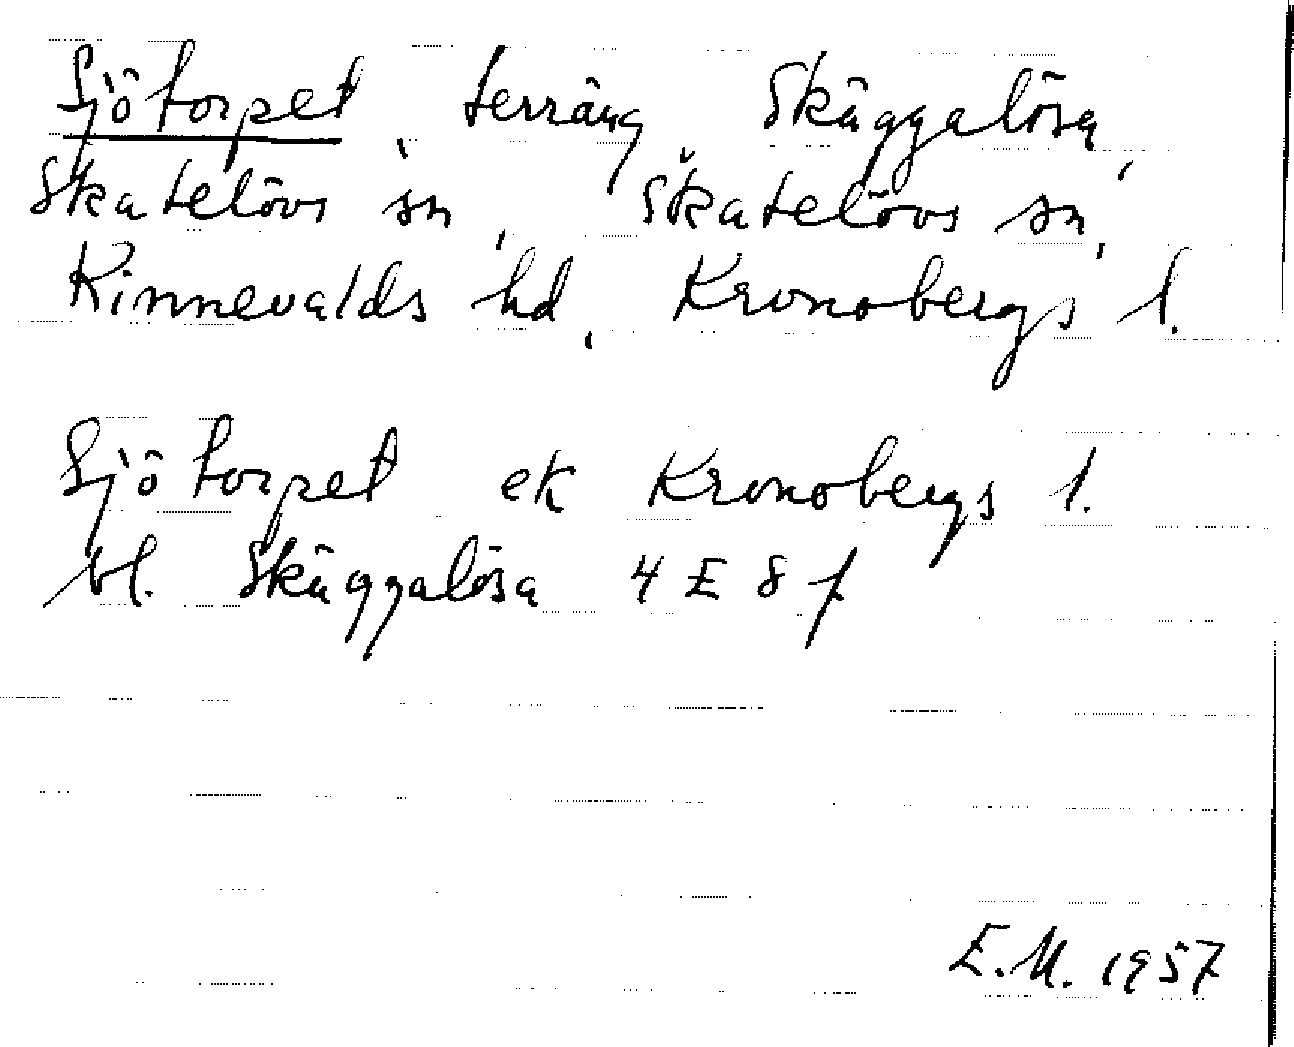 Sjötorpet, terräng, Skäggalösa,
Skatelövs sn, Skatelövs sn,
Kinnevalds hd, Kronobergs l.
Sjötorpet ek Kronobergs l.
bl. Skäggalösa 4 E 8 f
E.M. 1957